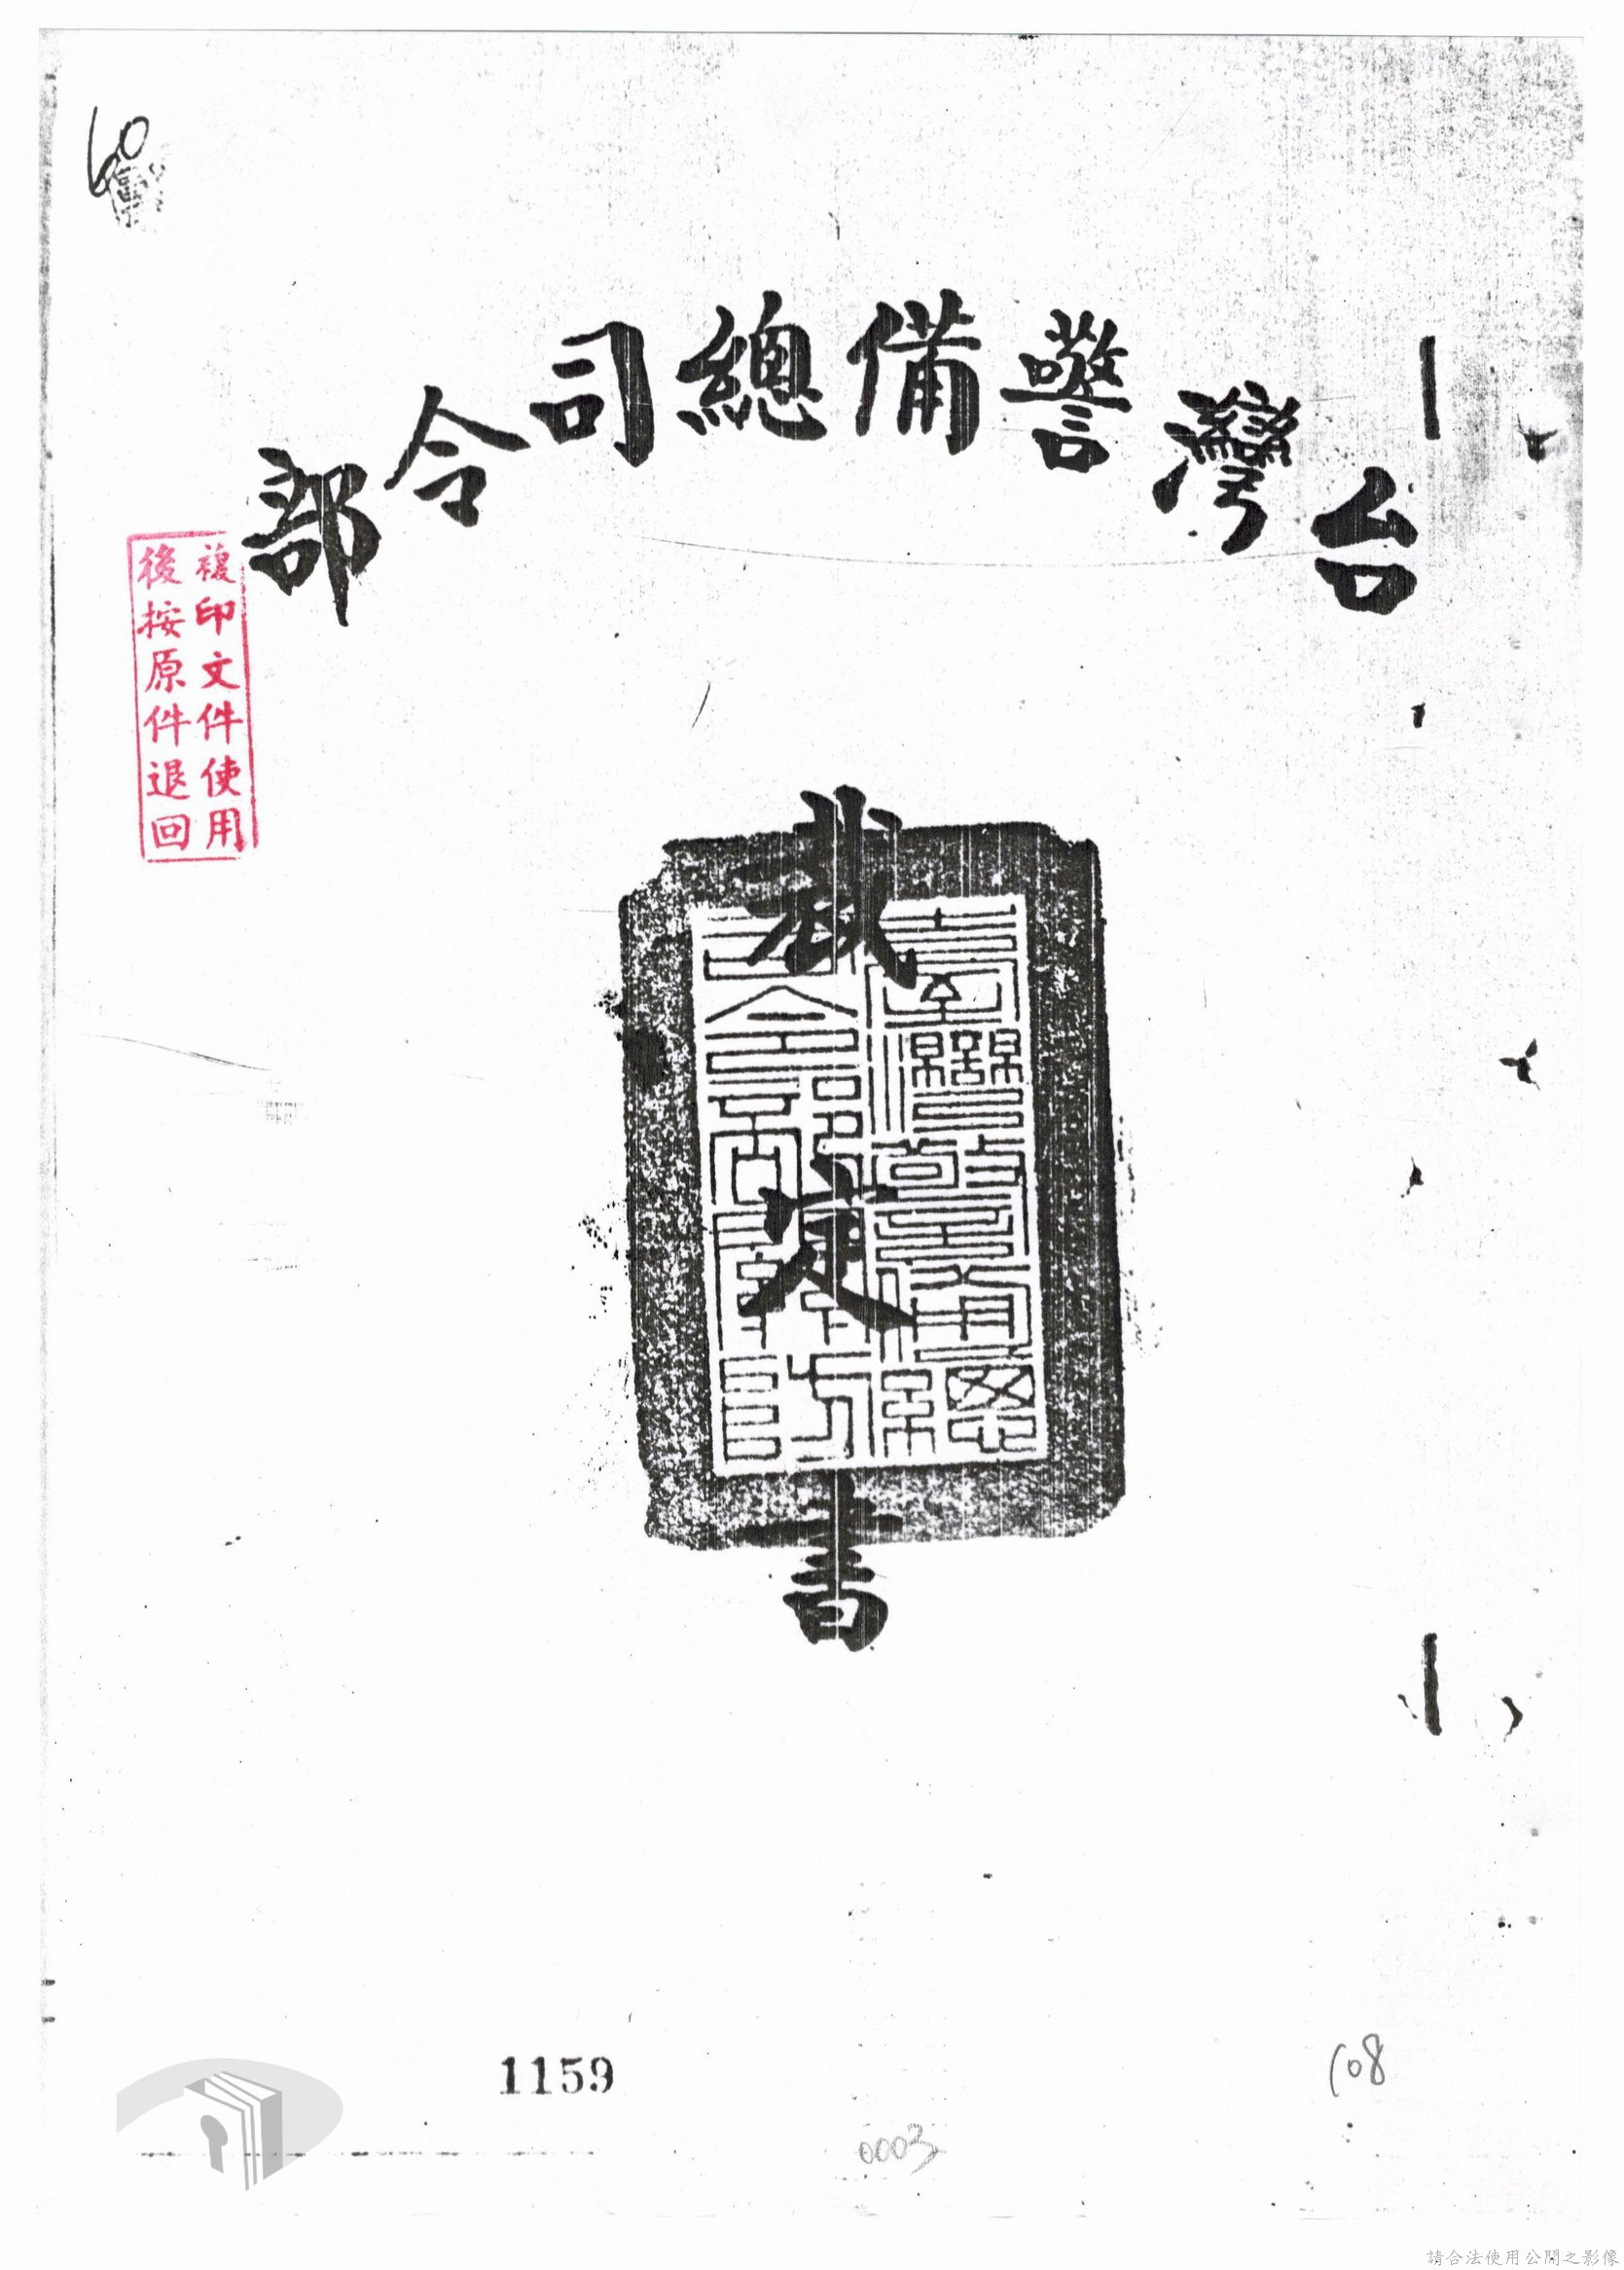 60
台灣警備總司令部
複印文件使用
後按原件退回
裁定書
臺灣警備總
司令部關防
1159
108
0003
請合法使用公開之影像